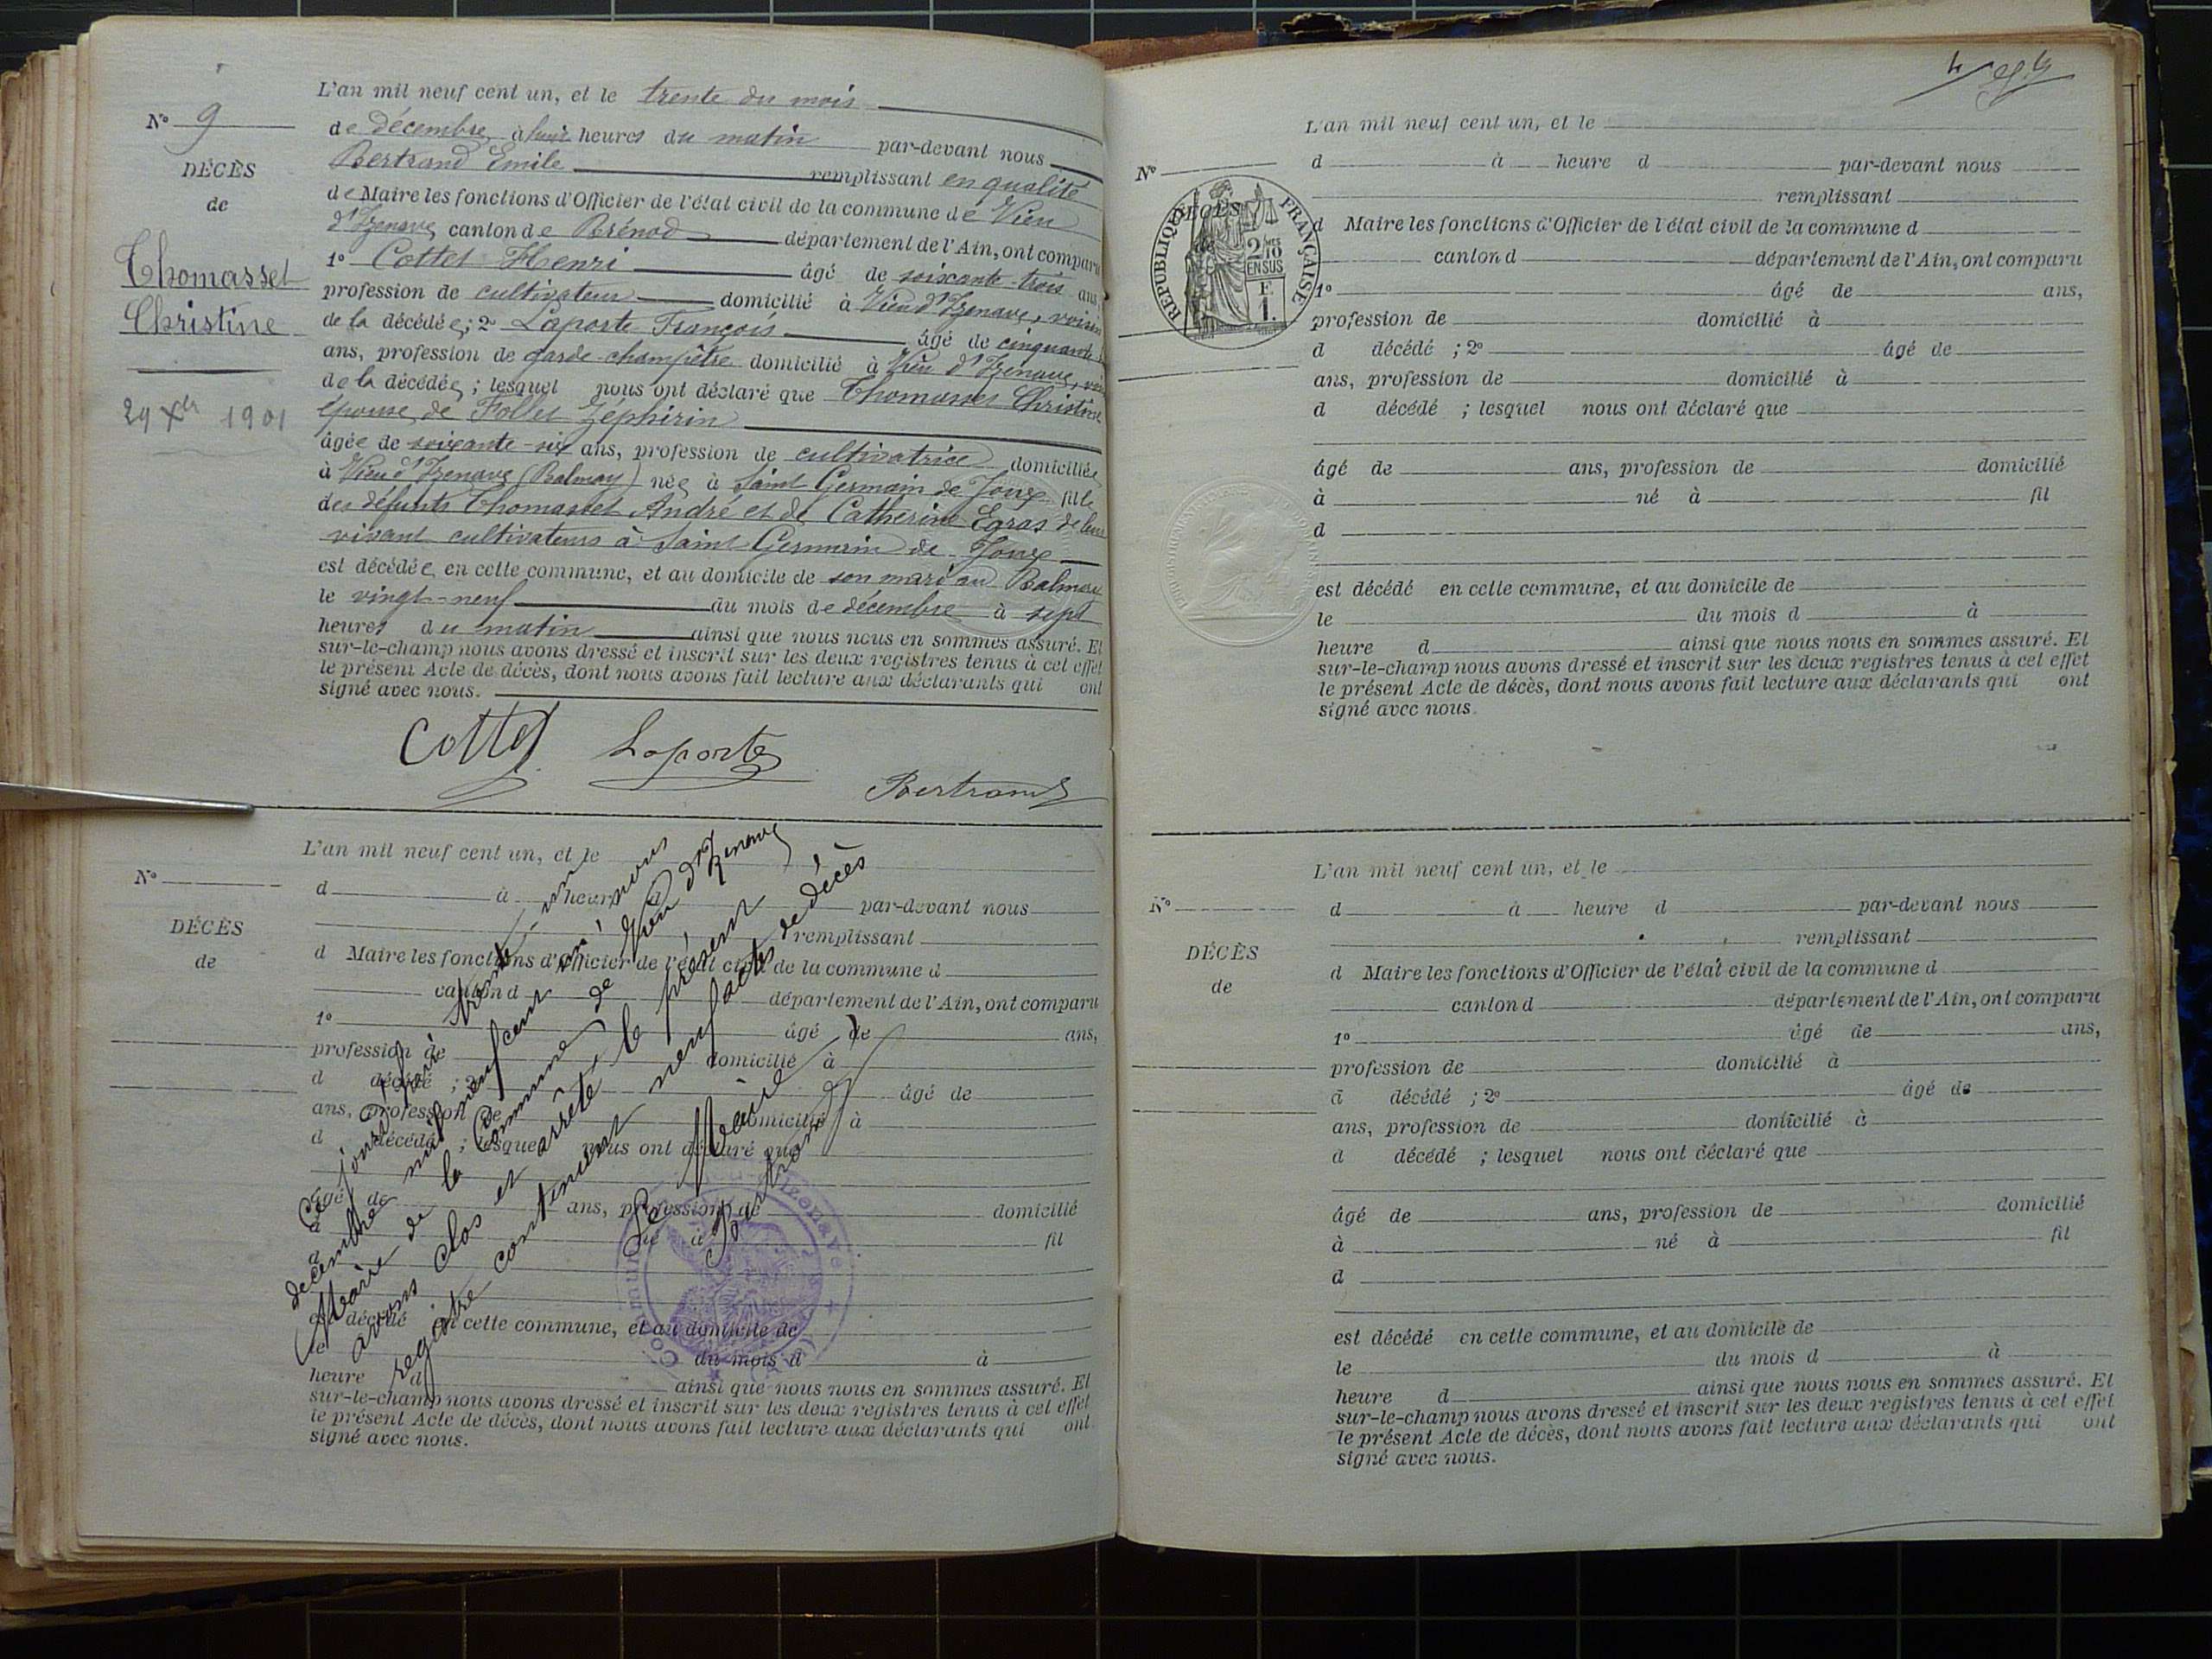 N° 9
DÉCÈS
de
Thomasset
Christine
29 Xbr 1901
L'an mil neuf cent un, et le trente du mois
de décembre à huit heures du matin par-devant nous
Bertrand Emile remplissant en qualité
de Maire les fonctions d'Officier de l'état civil de la commune de Vieu
d'Izenave, canton de Brénod département de l'Ain, ont comparu
1° Cottet Henri âgé de soixante-trois ans
profession de cultivateur domicilié à Vieu d'Izenave, voisin
de la décédée; 2° Laporte François âgé de cinquante
ans, profession de garde-champêtre domicilié à Vieu d'Izenave,
de la décédée; lesquel nous ont déclaré que Thomasset Christine
épouse de Follet Zéphirin
âgée de soixante-six ans, profession de cultivatrice domiciliée
à Vieu d'Izenave (Balmay) née à Saint Germain de Joux fille
des défunts Thomasset André et de Catherine Egras de leur
vivant cultivateurs à Saint Germain de Joux
est décédée en cette commune, et au domicile de son mari au Balmay
le vingt-neuf du mois de décembre à sept
heures du matin ainsi que nous nous en sommes assuré. Et
sur-le-champ nous avons dressé et inscrit sur les deux registres tenus à cet effet
le présent Acte de décès, dont nous avons fait lecture aux déclarants qui ont
signé avec nous.
Cottet Laporte
Bertrand
N°
DÉCÈS
de
L'an mil neuf cent un, et le
d à heure d par-devant nous
remplissant
d Maire les fonctions d'Officier de l'état civil de la commune d
canton d département de l'Ain, ont comparu
1° âgé de ans,
profession de domicilié à
d décédé ; 2° âgé de
ans, profession de domicilié à
d décédé ; lesquel nous ont déclaré que
âgé de ans, profession de domicilié
à né à fil
d
est décédé en cette commune, et au domicile de
le du mois d à
heure d ainsi que nous nous en sommes assuré. Et
sur-le-champ nous avons dressé et inscrit sur les deux registres tenus à cet effet
le présent Acte de décès, dont nous avons fait lecture aux déclarants qui ont
signé avec nous.
décembre mil neuf cent un, nous
Maire de la Commune de Vieu d'Izenave
avons clos et arrêté le présent
registre contenant neuf actes de décès
Le Maire
Bertrand
N°
DÉCÈS
de
RÉPUBLIQUE FRANÇAISE
2/10MES
EN SUS
F.
1.
L'an mil neuf cent un, et le
d à heure d par-devant nous
remplissant
d Maire les fonctions d'Officier de l'état civil de la commune d
canton d département de l'Ain, ont comparu
1° âgé de ans,
profession de domicilié à
d décédé ; 2° âgé de
ans, profession de domicilié à
d décédé ; lesquel nous ont déclaré que
âgé de ans, profession de domicilié
à né à fil
d
est décédé en cette commune, et au domicile de
le du mois d à
heure d ainsi que nous nous en sommes assuré. Et
sur-le-champ nous avons dressé et inscrit sur les deux registres tenus à cet effet
le présent Acte de décès, dont nous avons fait lecture aux déclarants qui ont
signé avec nous.
N°
DÉCÈS
de
L'an mil neuf cent un, et le
d à heure d par-devant nous
remplissant
d Maire les fonctions d'Officier de l'état civil de la commune d
canton d département de l'Ain, ont comparu
1° âgé de ans,
profession de domicilié à
d décédé ; 2° âgé de
ans, profession de domicilié à
d décédé ; lesquel nous ont déclaré que
âgé de ans, profession de domicilié
à né à fil
d
est décédé en cette commune, et au domicile de
le du mois d à
heure d ainsi que nous nous en sommes assuré. Et
sur-le-champ nous avons dressé et inscrit sur les deux registres tenus à cet effet
le présent Acte de décès, dont nous avons fait lecture aux déclarants qui ont
signé avec nous.